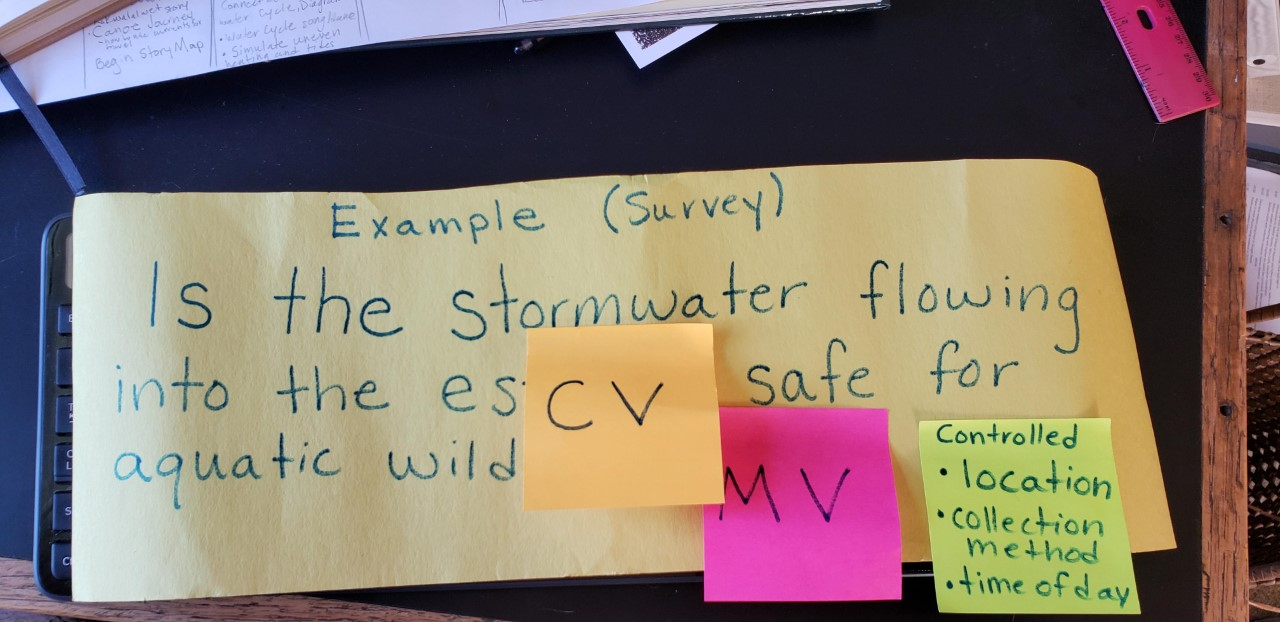 Canoe Journey
Begin StoryMap
water cycle Diagram
• Water cycle song/dance
• Simulate uneven
heating and tides
Example (Survey)
Is the stormwater flowing
into the es safe for
aquatic wild
CV
MV
Controlled
• location
• collection
method
• time of day